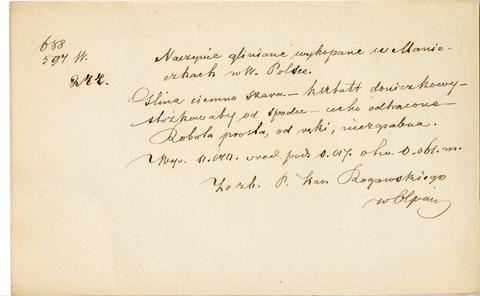 688
597 W.
244.
Naczynie gliniane wykopane w Manie-
czkach w W. Polsce.
Glina ciemno szara – kształt doniczkowy –
stożkowaty od spodu – ucho odtrącone –
Robota prosta, od ręki, niezgrabna.
Wys. 0.070. średn. pods 0.017. otw. 0.061. m.
Ze zb. P. Kar. Rogawskiego
w Ołpinach